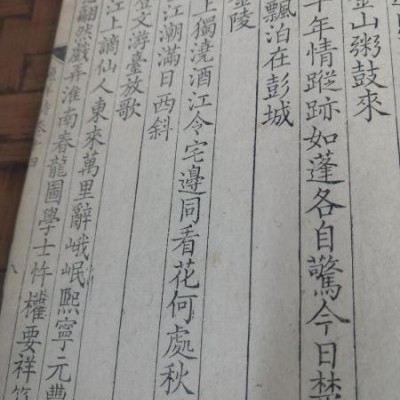 金山粥鼓來
十年情蹤跡如蓬各自驚今日楚
飄泊在彭城
金陵
上獨澆酒江令宅邊同看花何處秋
江潮滿日西斜
登文游臺放歌
江上謫仙人東來萬里辭峨岷熙寧元豐
翩然戲弄淮南春龍圖學士忤權要祥符